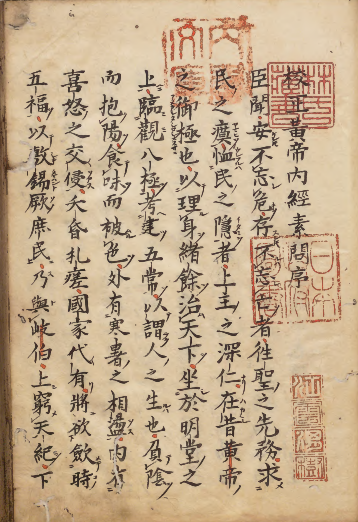 校正黃帝內經素問序
臣聞安不忘危存不忘亡者徃聖之先務求
民之瘼恤民之隱者上主之深仁在昔黃帝
之御極也以理身緒餘治天下坐於明堂之
上臨觀八極考建五常以謂人之生也負陰
而抱陽食味而被色外有寒暑之相盪内有
喜怒之交侵夭昏札瘥國家代有將欲歛時
五福以敷錫厥庶民乃與岐伯上窮天紀下
江雲渭樹